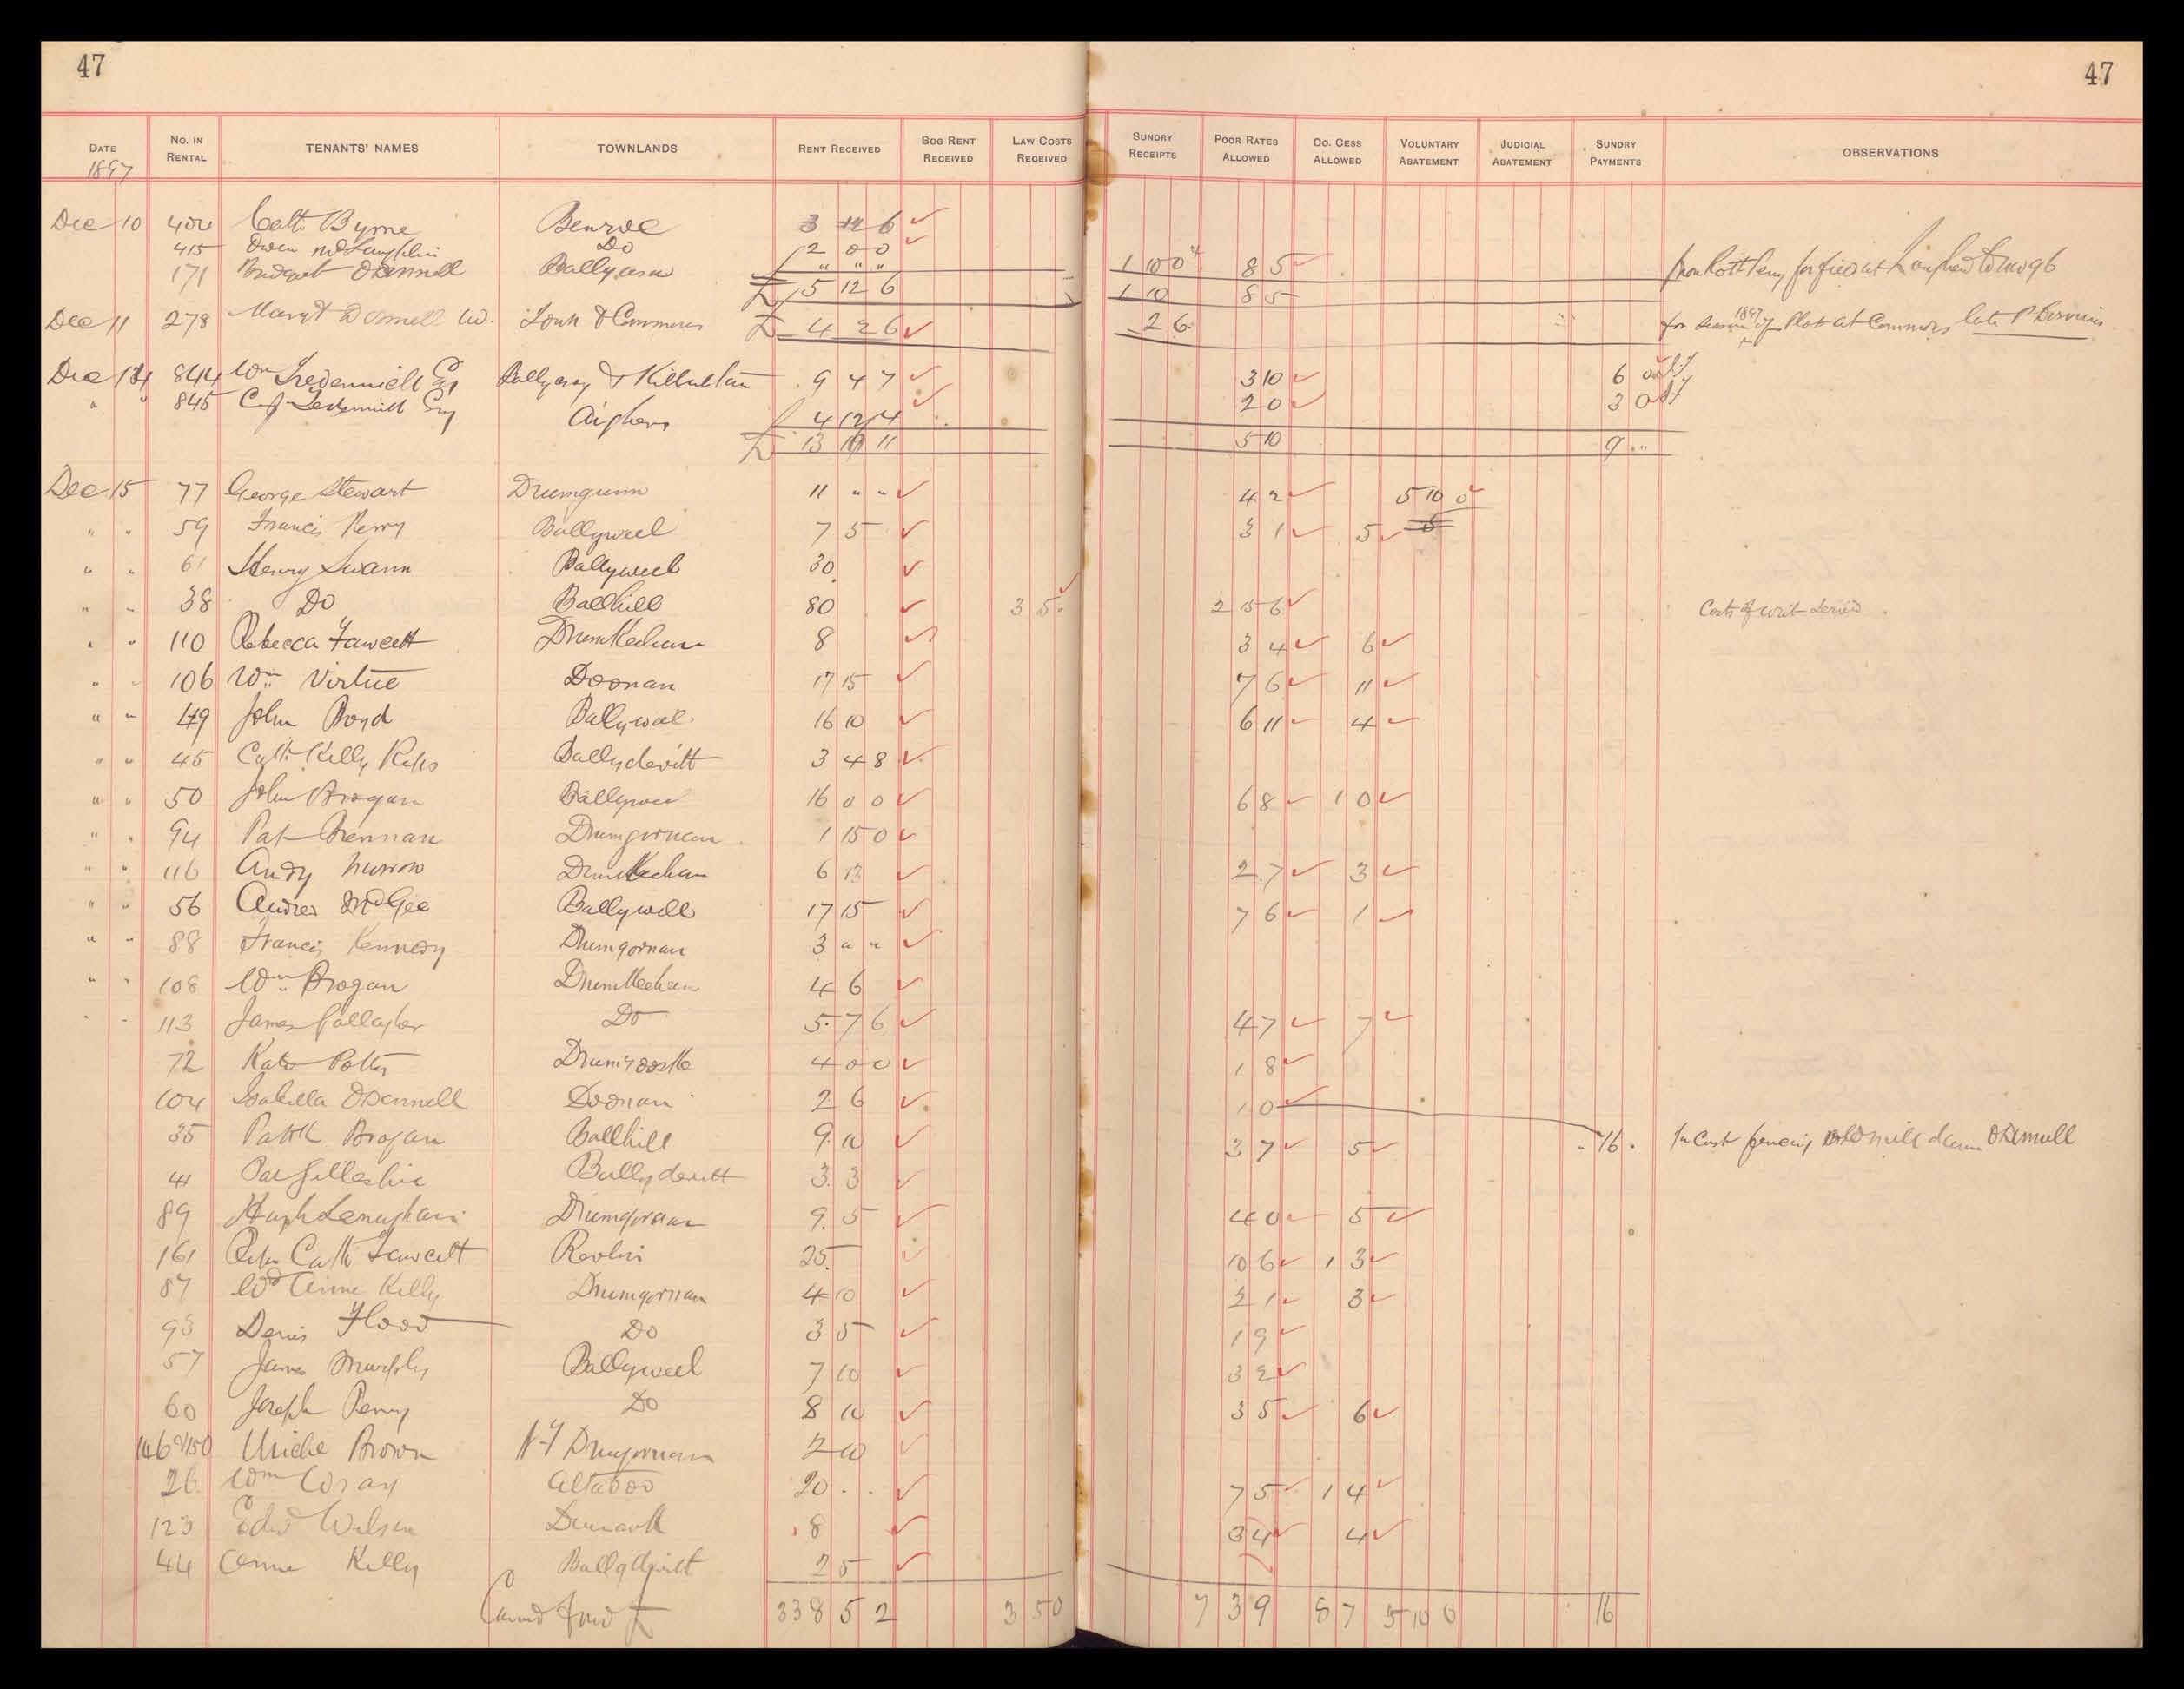 47 47
DATE No. IN RENTAL TENANTS' NAMES TOWNLANDS RENT RECEIVED BOG RENT RECEIVED LAW COSTS RECEIVED SUNDRY RECEIPTS POOR RATES ALLOWED CO. CESS ALLOWED VOLUNTARY ABATEMENT JUDICIAL ABATEMENT SUNDRY PAYMENTS OBSERVATIONS
1897
Dec 10 404 Cath Byrne Benroe 3 12 6
415 Owen McLaughlin Do 2 0 0
171 Bridget O'Donnell " " " 1 10 0 8 5 from Robt Perry for
£ 5 12 6 1 10 8 5
Dec 11 278 Margt Donnell Wd. Town & Commons £ 4 2 6 2 6 for 1897 of Plot at Commons late P
Dec 14 844 Wm Tredennick Esq & 9 4 7 3 10 6
" " 845 Esq 4 12 4 2 0 3 0
£ 13 11 5 10 9 "
Dec 15 77 George Stewart Drumgunn 11 " " 4 2 5 10 0
" " 59 Francis Perry Ballyweel 7 5 3 1 5
" " 61 Henry Swann Ballyweel 30
" " 38 Do Ballhill 80 3 5 2 6 Costs of writ served
" " 110 Rebecca Fawcett Drumkeelan 8 3 4 6
" " 106 Wm Virtue Doonan 17 15 7 6 11
" " 49 John Boyd Ballyweel 16 10 6 11 4
" " 45 Cath Kelly Reps Ballydevitt 3 4 8
" " 50 John Brogan Ballyweel 16 0 0 6 8 1 0
" " 94 Pat Brennan Drumgornan 1 15 0
" " 116 Andy Drumkeelan 6 13 2 7 3
" " 56 Andrew McGee Ballyweel 17 15 7 6 1
" " 88 Francis Kennedy Drumgornan 3 " "
" " 108 Wm Brogan Drumkeelan 4 6
" " 113 James Gallagher Do 5 7 6 4 7 7
72 Kate Potter 4 0 0 1 8
104 Isabella O'Donnell Doonan 2 6 1 0
35 Patk Brogan Ballhill 9 10 3 7 5 16 In Cost fencing mill dam
41 Pat Gillespie Ballydevitt 3 3
89 Hugh Drumgornan 9 5 4 0 5
161 Cath Fawcett Revlin 25 10 6 1 3
87 Wd Anne Kelly Drumgornan 4 10 2 1 3
93 Denis Flood Do 3 5 1 9
57 James Murphy Ballyweel 7 10 3 2
60 Joseph Perry Do 8 10 3 5 6
146 & 150 Brown Drumgornan 2 10
26 Wm Wray Altadoo 20 . . 7 5 1 4
123 Edwd Wilson Drumark 8 3 4 4
44 Anne Kelly Ballydevitt 2 5
Carrd Fwd £ 338 5 2 3 5 0 7 3 9 8 7 5 10 0 16